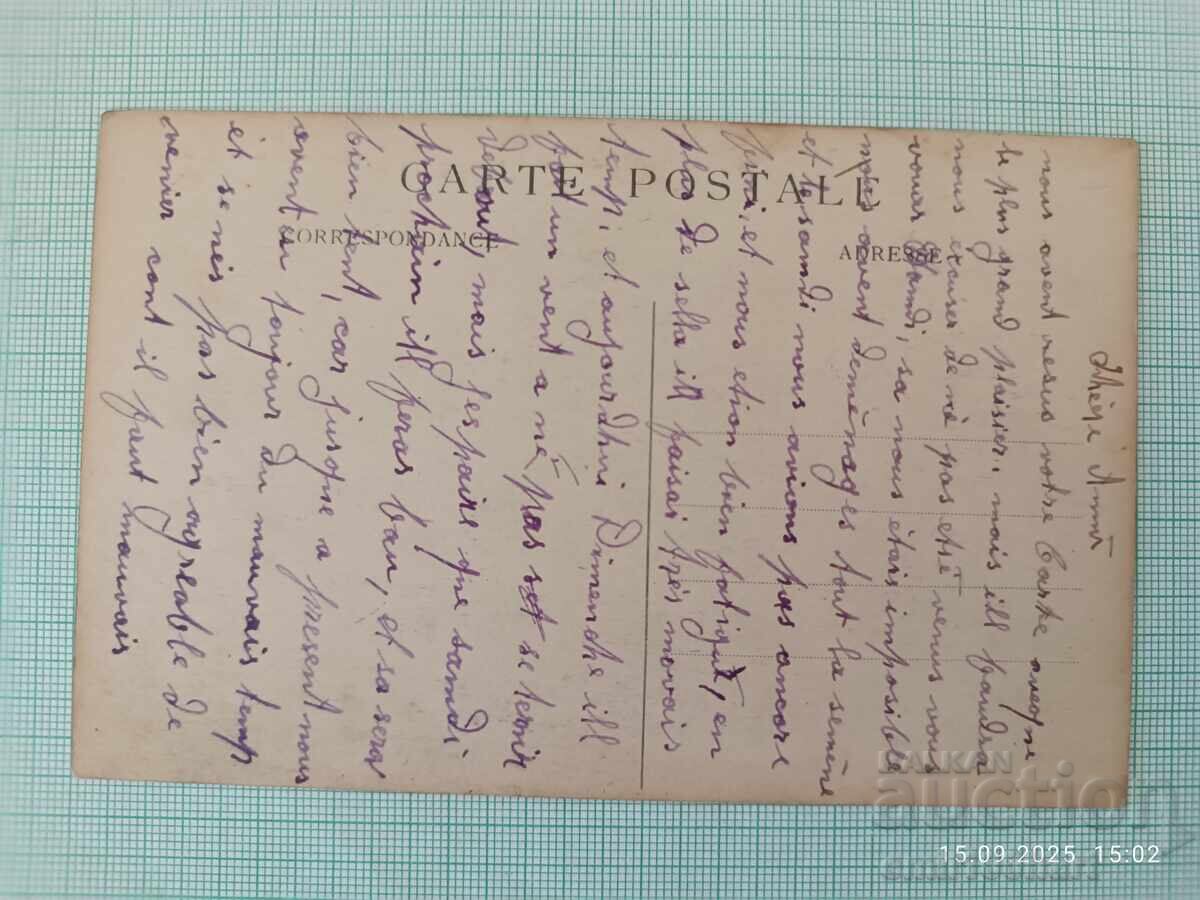 CARTE POSTALE
CORRESPONDANCE
ADRESSE
Chère Ami
nous avent resus votre Carte aveque
le plus grand plaisier, mais ill faudra
nous excuser de nè pas etrè venus vous
voirs Samdi, sa nous étais imposible
mois avent demenages tout la semène
et le samdi nous avions pas ancore
fini, et nous etion bien fatiguè, en
plus de sella ill faisai très movais
temp, et aujourdhui Dimenche ill
fait un vent a nè pas se tenir
debout, mais jespaire que samdi
prochain ill feras bau, et sa sera
bien tent, car jusque a present nous
avent eu toujour du mauvais temp
et se nès pas bien agreable de
venier cant il faut mauvais
BALKAN
auction
15.09.2025 15:02